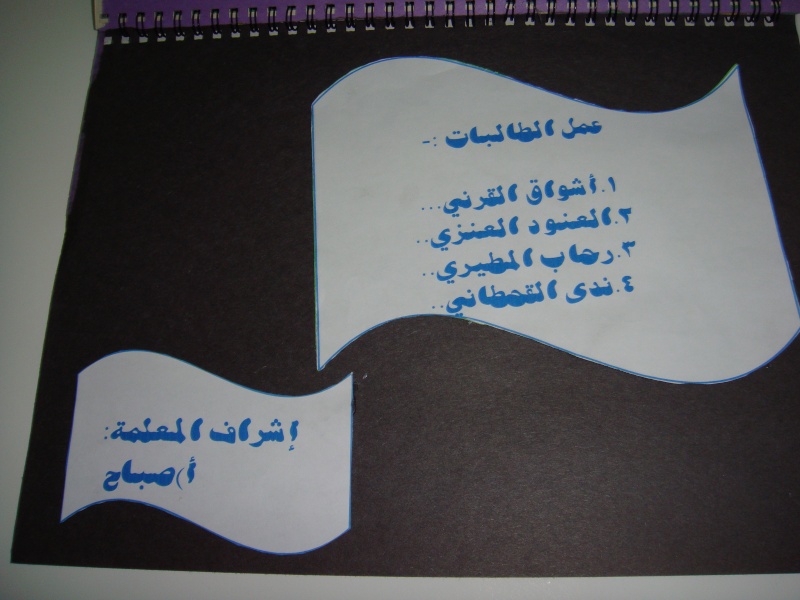 عمل الطالبات :-
١.أشواق القرني...
٢.العنود العنزي..
٣.رحاب المطيري..
٤.ندى القحطاني..
إشراف المعلمة:
أ)صباح